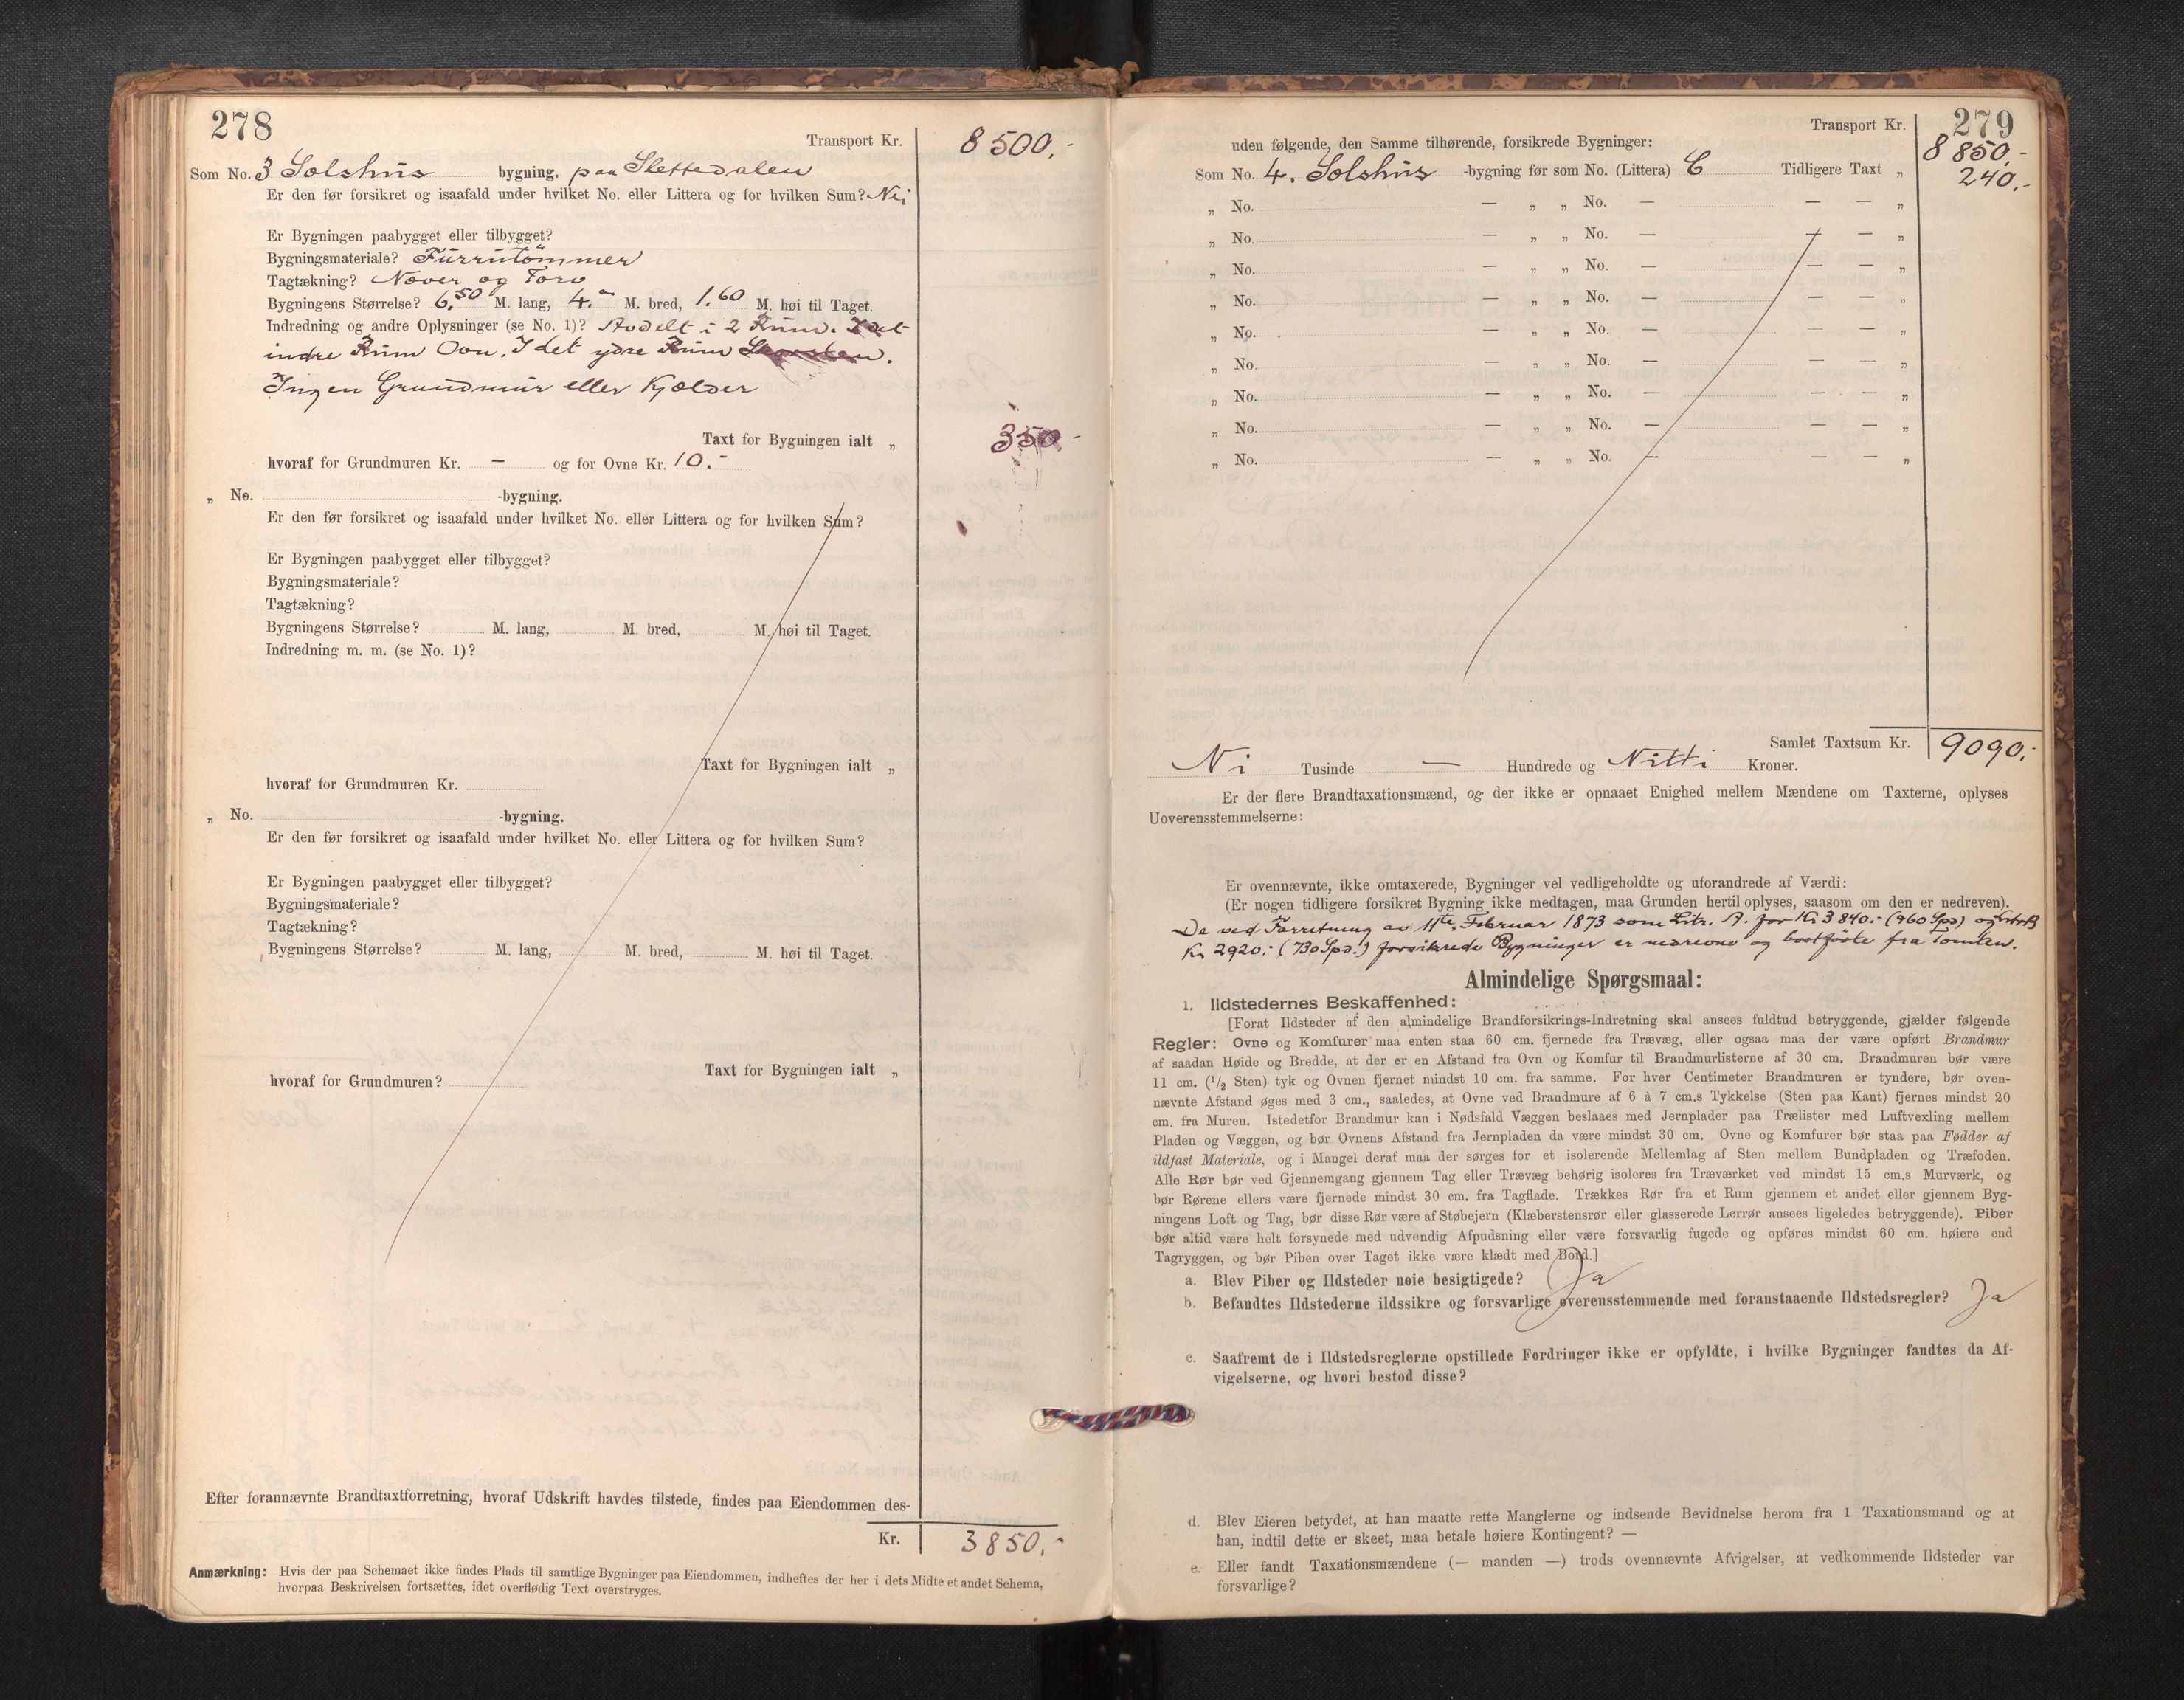 278
Transport Kr. 8500.-
Som No. 3 Solshus bygning. paa Slettedalen
Er den før forsikret og isaafald under hvilket No. eller Littera og for hvilken Sum? Nei
Er Bygningen paabygget eller tilbygget?
Bygningsmateriale? Furrutömmer
Tagtækning? Næver og Torv
Bygningens Størrelse? 6.50 M. lang, 4.- M. bred, 1.60 M. høi til Taget.
Indredning og andre Oplysninger (se No. 1)? Avdelt i 2 Rum. I det
indre Rum Ovn. I det ydre Rum Skorsten.
Ingen Grundmur eller Kjælder
Taxt for Bygningen ialt „ 350 -
hvoraf for Grundmuren Kr. — og for Ovne Kr. 10.-
„ No. -bygning.
Er den før forsikret og isaafald under hvilket No. eller Littera og for hvilken Sum?
Er Bygningen paabygget eller tilbygget?
Bygningsmateriale?
Tagtækning?
Bygningens Størrelse? M. lang, M. bred, M. høi til Taget.
Indredning m. m. (se No. 1)?
Taxt for Bygningen ialt „
hvoraf for Grundmuren Kr.
„ No. -bygning.
Er den før forsikret og isaafald under hvilket No. eller Littera og for hvilken Sum?
Er Bygningen paabygget eller tilbygget?
Bygningsmateriale?
Tagtækning?
Bygningens Størrelse? M. lang, M. bred, M. høi til Taget.
Taxt for Bygningen ialt „
hvoraf for Grundmuren?
Efter forannævnte Brandtaxtforretning, hvoraf Udskrift havdes tilstede, findes paa Eiendommen des-
Kr. 3850.-
Anmærkning: Hvis der paa Schemaet ikke findes Plads til samtlige Bygninger paa Eiendommen, indheftes der her i dets Midte et andet Schema,
hvorpaa Beskrivelsen fortsættes, idet overflødig Text overstryges.
279
Transport Kr. 8850.-
uden følgende, den Samme tilhørende, forsikrede Bygninger:
Som No. 4. Solshus -bygning før som No. (Littera) C Tidligere Taxt „ 240.-
„ No. — „ „ No. — — — „
„ No. — „ „ No. — — — „
„ No. — „ „ No. — — — „
„ No. — „ „ No. — — — „
„ No. — „ „ No. — — — „
„ No. — „ „ No. — — — „
„ No. — „ „ No. — — — „
„ No. — „ „ No. — — — „
„ No. — „ „ No. — — — „
Samlet Taxtsum Kr. 9090.-
Ni Tusinde — Hundrede og Nitti Kroner.
Er der flere Brandtaxationsmænd, og der ikke er opnaaet Enighed mellem Mændene om Taxterne, oplyses
Uoverensstemmelserne:
Er ovennævnte, ikke omtaxerede, Bygninger vel vedligeholdte og uforandrede af Værdi:
(Er nogen tidligere forsikret Bygning ikke medtagen, maa Grunden hertil oplyses, saasom om den er nedreven).
De ved Forretning av 11te Februar 1873 som Litr. A. for Kr. 3840.- (960 Spd) og Litr B
Kr 2920.- (730 Spd.) forsikrede Bygninger er nedrevne og bortförte fra Tomten.
Almindelige Spørgsmaal:
1. Ildstedernes Beskaffenhed:
[Forat Ildsteder af den almindelige Brandforsikrings-Indretning skal ansees fuldtud betryggende, gjælder følgende
Regler: Ovne og Komfurer maa enten staa 60 cm. fjernede fra Trævæg, eller ogsaa maa der være opført Brandmur
af saadan Høide og Bredde, at der er en Afstand fra Ovn og Komfur til Brandmurlisterne af 30 cm. Brandmuren bør være
11 cm. (1/2 Sten) tyk og Ovnen fjernet mindst 10 cm. fra samme. For hver Centimeter Brandmuren er tyndere, bør oven-
nævnte Afstand øges med 3 cm., saaledes, at Ovne ved Brandmure af 6 à 7 cm.s Tykkelse (Sten paa Kant) fjernes mindst 20
cm. fra Muren. Istedetfor Brandmur kan i Nødsfald Væggen beslaaes med Jernplader paa Trælister med Luftvexling mellem
Pladen og Væggen, og bør Ovnens Afstand fra Jernpladen da være mindst 30 cm. Ovne og Komfurer bør staa paa Fødder af
ildfast Materiale, og i Mangel deraf maa der sørges for et isolerende Mellemlag af Sten mellem Bundpladen og Træfoden.
Alle Rør bør ved Gjennemgang gjennem Tag eller Trævæg behørig isoleres fra Træværket ved mindst 15 cm.s Murværk, og
bør Rørene ellers være fjernede mindst 30 cm. fra Tagflade. Trækkes Rør fra et Rum gjennem et andet eller gjennem Byg-
ningens Loft og Tag, bør disse Rør være af Støbejern (Klæberstensrør eller glasserede Lerrør ansees ligeledes betryggende). Piber
bør altid være helt forsynede med udvendig Afpudsning eller være forsvarlig fugede og opføres mindst 60 cm. høiere end
Tagryggen, og bør Piben over Taget ikke være klædt med Bord.]
a. Blev Piber og Ildsteder nøie besigtigede? Ja
b. Befandtes Ildstederne ildssikre og forsvarlige overensstemmende med foranstaaende Ildstedsregler? Ja
c. Saafremt de i Ildstedsreglerne opstillede Fordringer ikke er opfyldte, i hvilke Bygninger fandtes da Af-
vigelserne, og hvori bestod disse?
d. Blev Eieren betydet, at han maatte rette Manglerne og indsende Bevidnelse herom fra 1 Taxationsmand og at
han, indtil dette er skeet, maa betale høiere Kontingent? —
e. Eller fandt Taxationsmændene (— manden —) trods ovennævnte Afvigelser, at vedkommende Ildsteder var
forsvarlige?